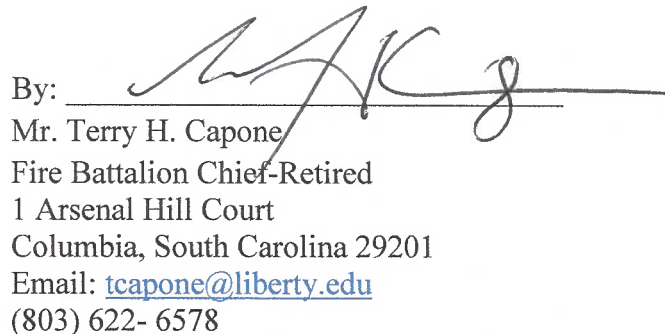 By:
Mr. Terry H. Capone
Fire Battalion Chief-Retired
1 Arsenal Hill Court
Columbia, South Carolina 29201
Email: tcapone@liberty.edu
(803) 622- 6578